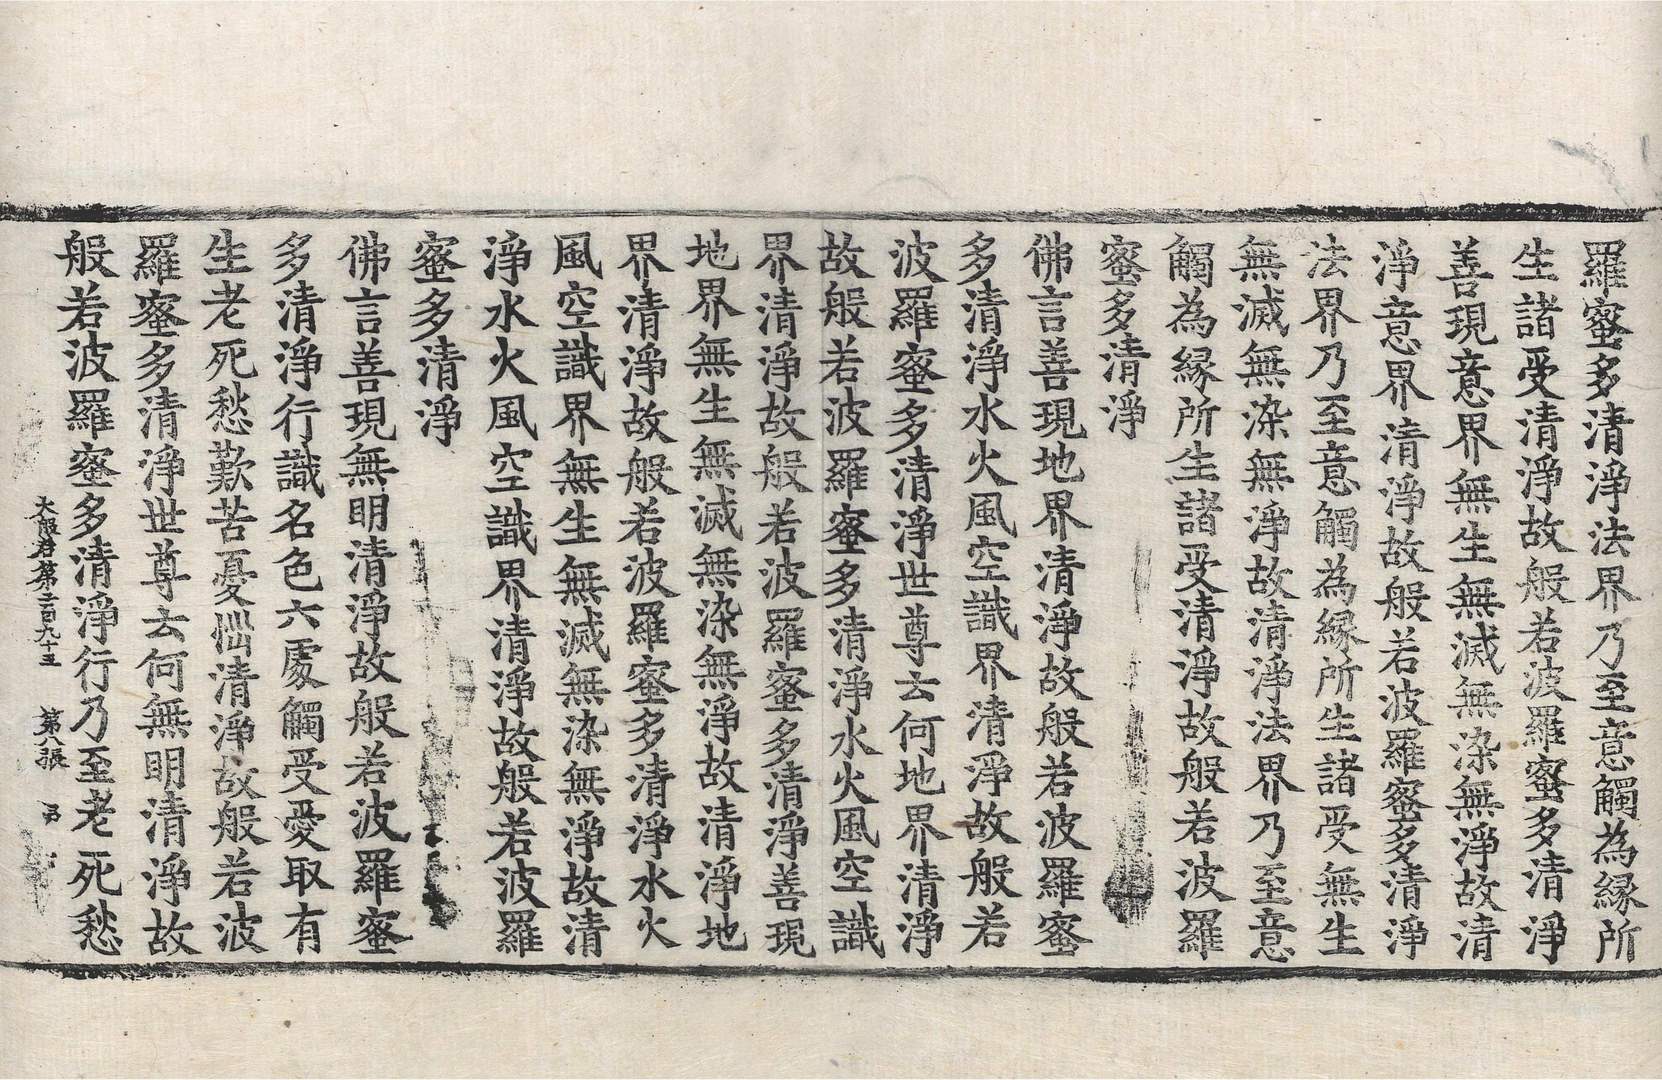 羅蜜多清淨法界乃至意觸為緣所
生諸受清淨故般若波羅蜜多清淨
善現意界無生無滅無染無淨故清
淨意界清淨故般若波羅蜜多清淨
法界乃至意觸為緣所生諸受無生
無滅無染無淨故清淨法界乃至意
觸為緣所生諸受清淨故般若波羅
蜜多清淨
佛言善現地界清淨故般若波羅蜜
多清淨水火風空識界清淨故般若
波羅蜜多清淨世尊云何地界清淨
故般若波羅蜜多清淨水火風空識
界清淨故般若波羅蜜多清淨善現
地界無生無滅無染無淨故清淨地
界清淨故般若波羅蜜多清淨水火
風空識界無生無滅無染無淨故清
淨水火風空識界清淨故般若波羅
蜜多清淨
佛言善現無明清淨故般若波羅蜜
多清淨行識名色六處觸受愛取有
生老死愁歎苦憂惱清淨故般若波
羅蜜多清淨世尊云何無明清淨故
般若波羅蜜多清淨行乃至老死愁
大般若第二百九十五 第八張